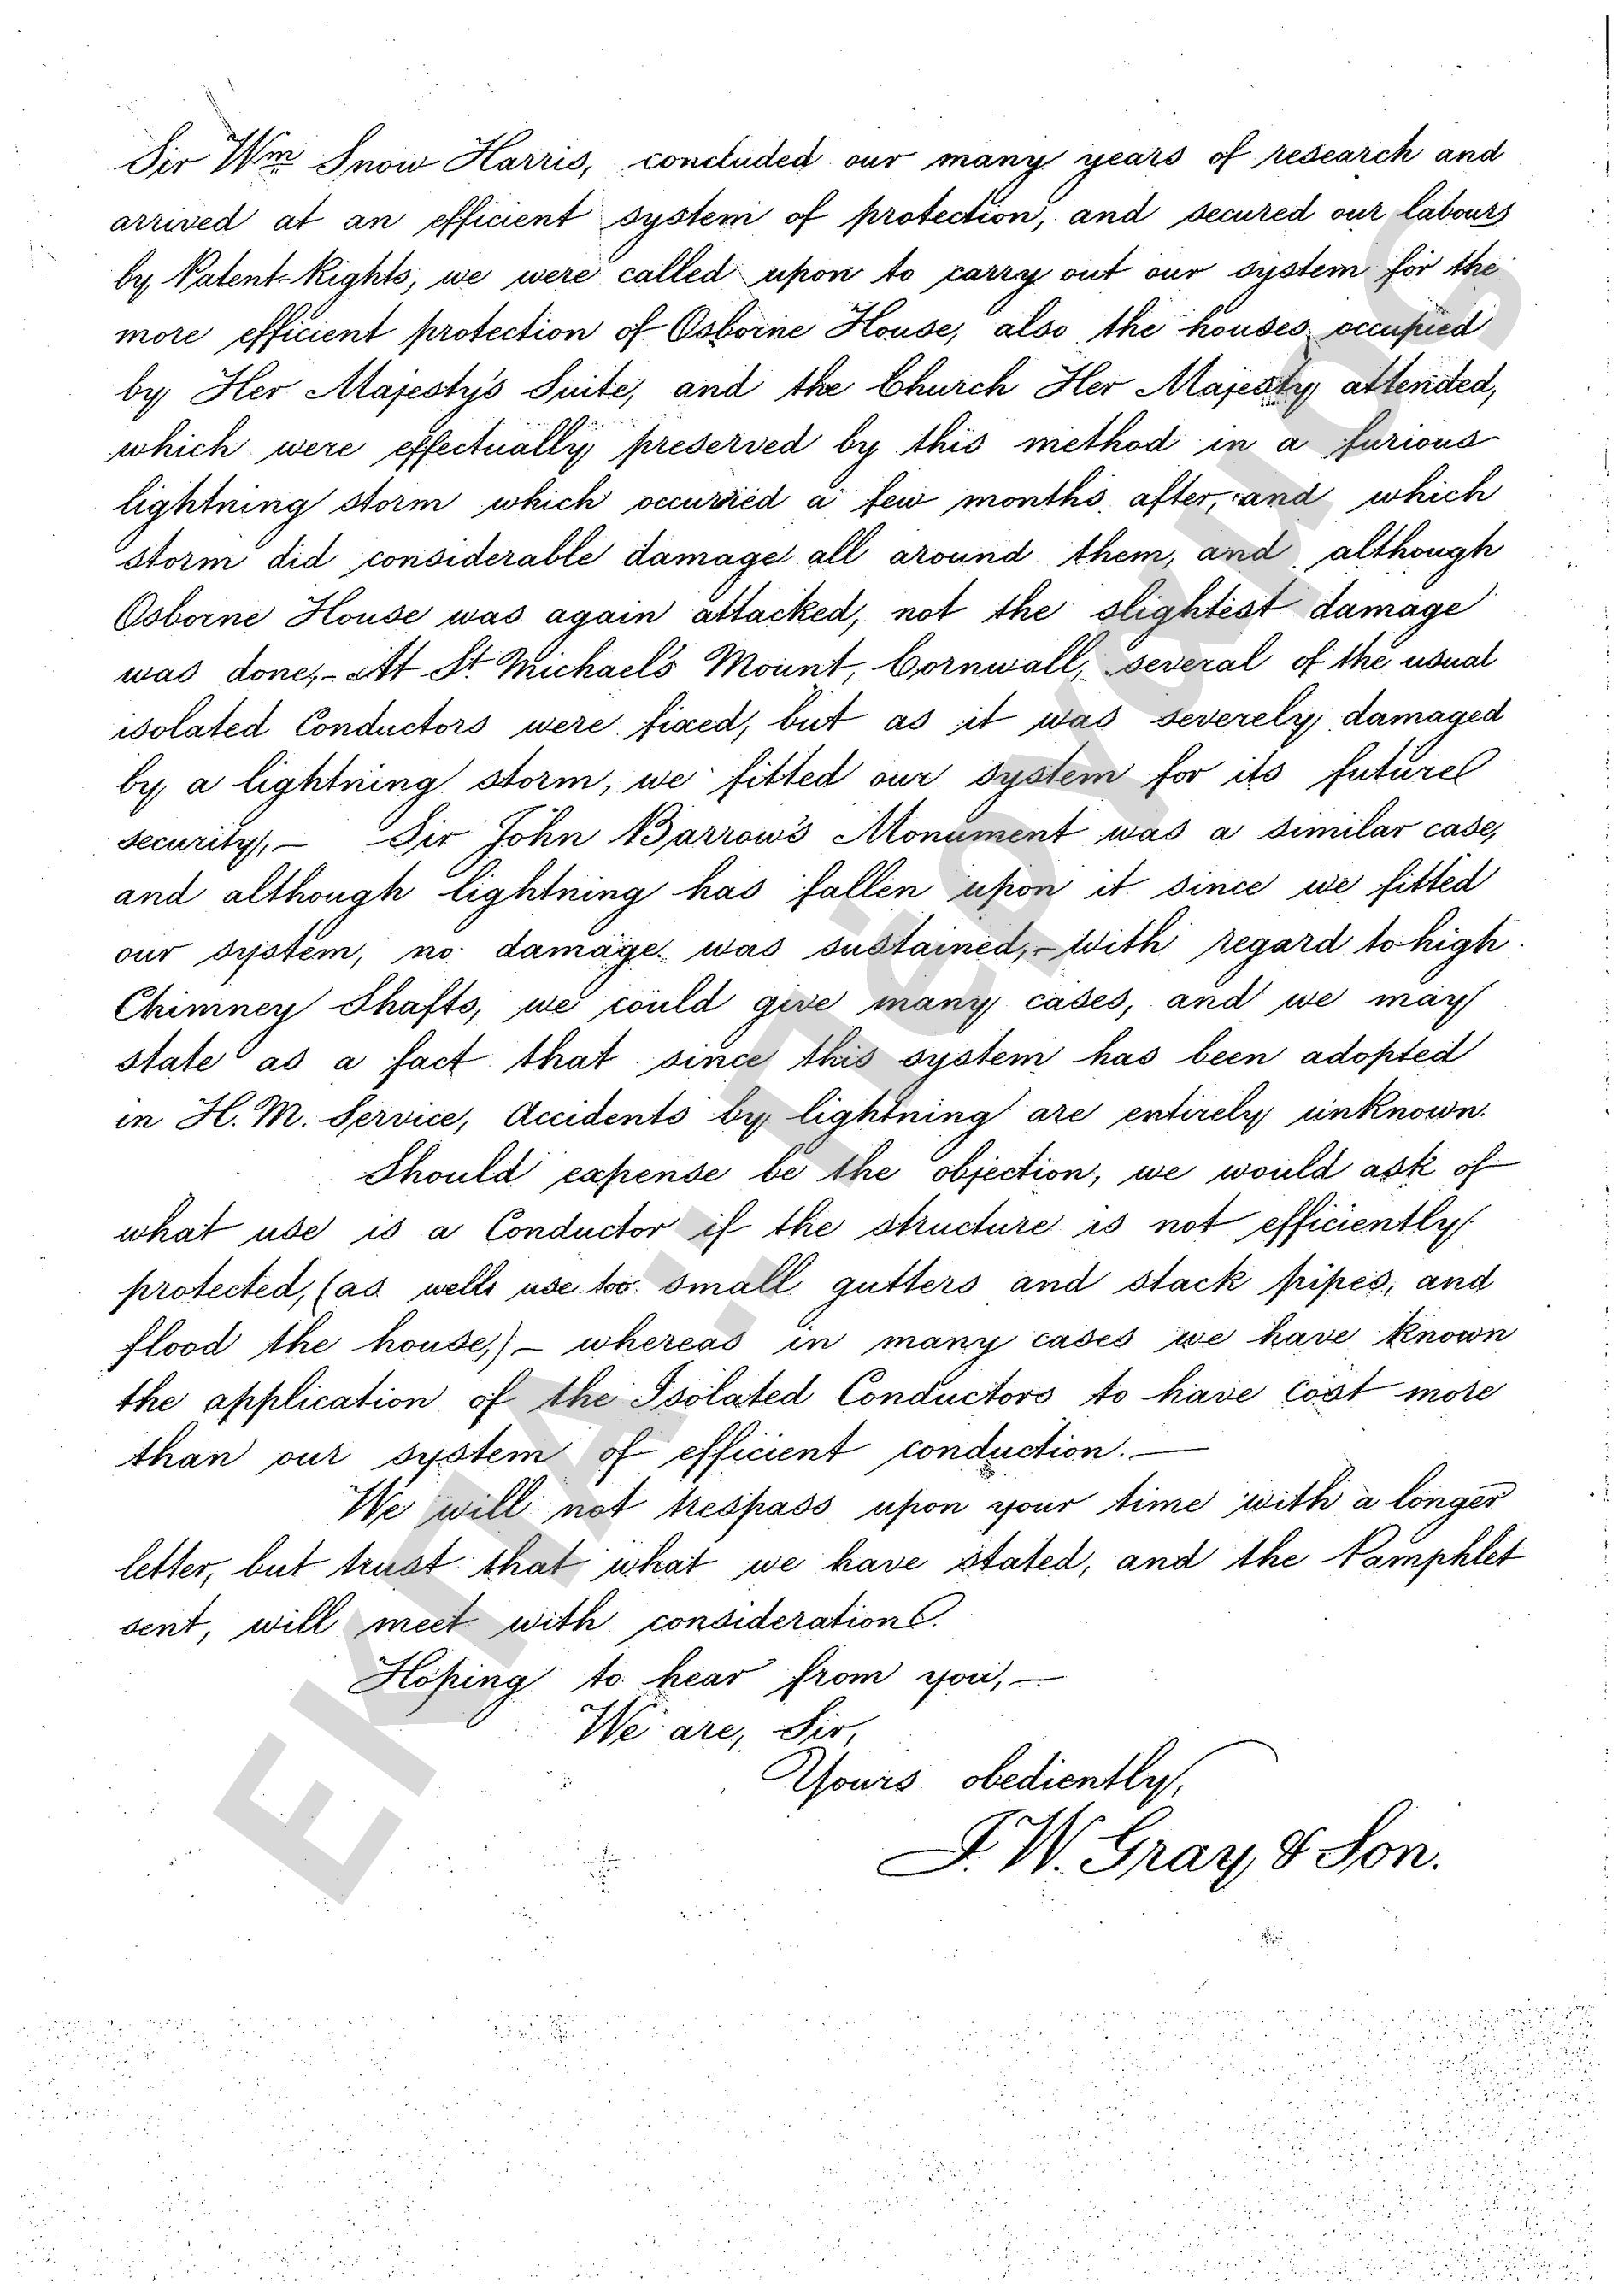 Sir Wm Snow Harris, concluded our many years of research and
arrived at an efficient system of protection, and secured our labours
by Patent-Rights, we were called upon to carry out our system for the
more efficient protection of Osborne House, also the houses occupied
by Her Majesty's Suite, and the Church Her Majesty attended,
which were effectually preserved by this method in a furious
lightning storm which occurried a few months after, and which
storm did considerable damage all around them, and although
Osborne House was again attacked, not the slightest damage
was done,- At St. Michael's Mount, Cornwall, several of the usual
isolated Conductors were fixed, but as it was severely damaged
by a lightning storm, we fitted our system for its future
security,- Sir John Barrow's Monument was a similar case,
and although lightning has fallen upon it since we fitted
our system, no damage was sustained,- With regard to high
Chimney Shafts, we could give many cases, and we may
state as a fact that since this system has been adopted
in H. M. Service, Accidents by lightning are entirely unknown.
Should expense be the objection, we would ask of
what use is a Conductor if the structure is not efficiently
protected, (as well use too small gutters and stack pipes, and
flood the house,) - whereas in many cases we have known
the application of the Isolated Conductors to have cost more
than our system of efficient conduction.-
We will not trespass upon your time with a longer
letter, but trust that what we have stated, and the Pamphlet
sent, will meet with consideration.
Hoping to hear from you,-
We are, Sir,
Yours obediently,
J. W. Gray, & Son.